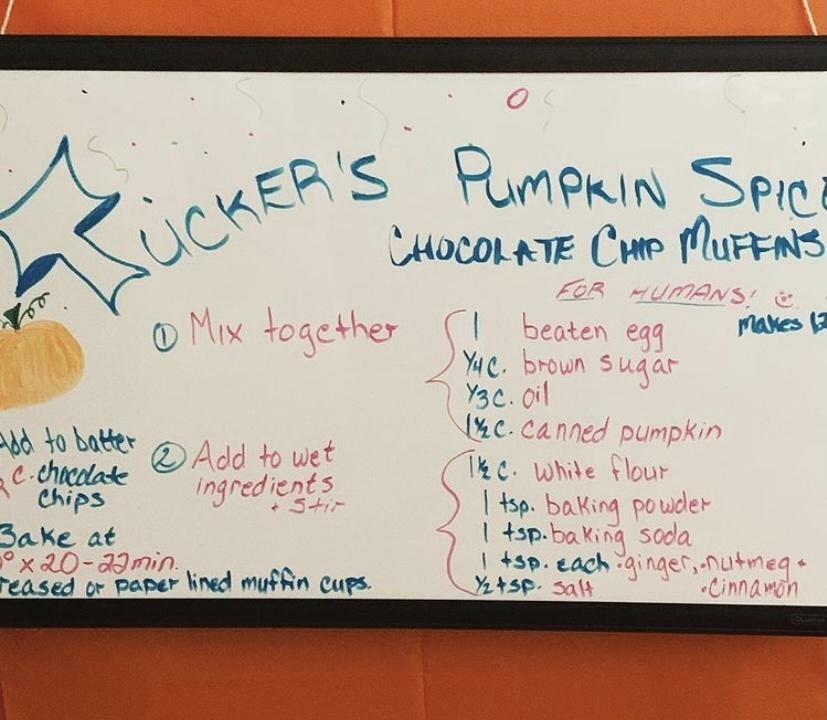 Tucker's Pumpkin Spice
Chocolate Chip Muffins
For Humans!
makes 12
① Mix together
1 beaten egg
1/4 c. brown sugar
1/3 c. oil
1 1/2 c. canned pumpkin
② Add to wet
ingredients
+ stir
1 1/2 c. white flour
1 tsp. baking powder
1 tsp. baking soda
1 tsp. each • ginger, • nutmeg +
• cinnamon
1/2 tsp. salt
Add to batter
c. chocolate
chips
Bake at
° x 20-22 min.
reased or paper lined muffin cups.